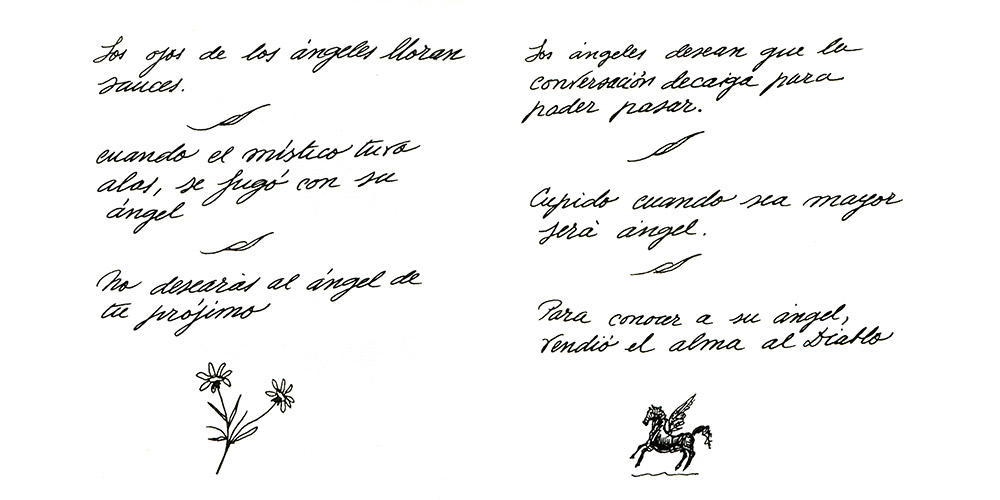 Los ojos de los ángeles lloran
sauces.
cuando el místico tuvo
alas, se fugó con su
ángel
No desearás al ángel de
tu prójimo
Los ángeles desean que la
conversación decaiga para
poder pasar.
Cupido cuando sea mayor
será ángel.
Para conocer a su ángel,
vendió el alma al Diablo